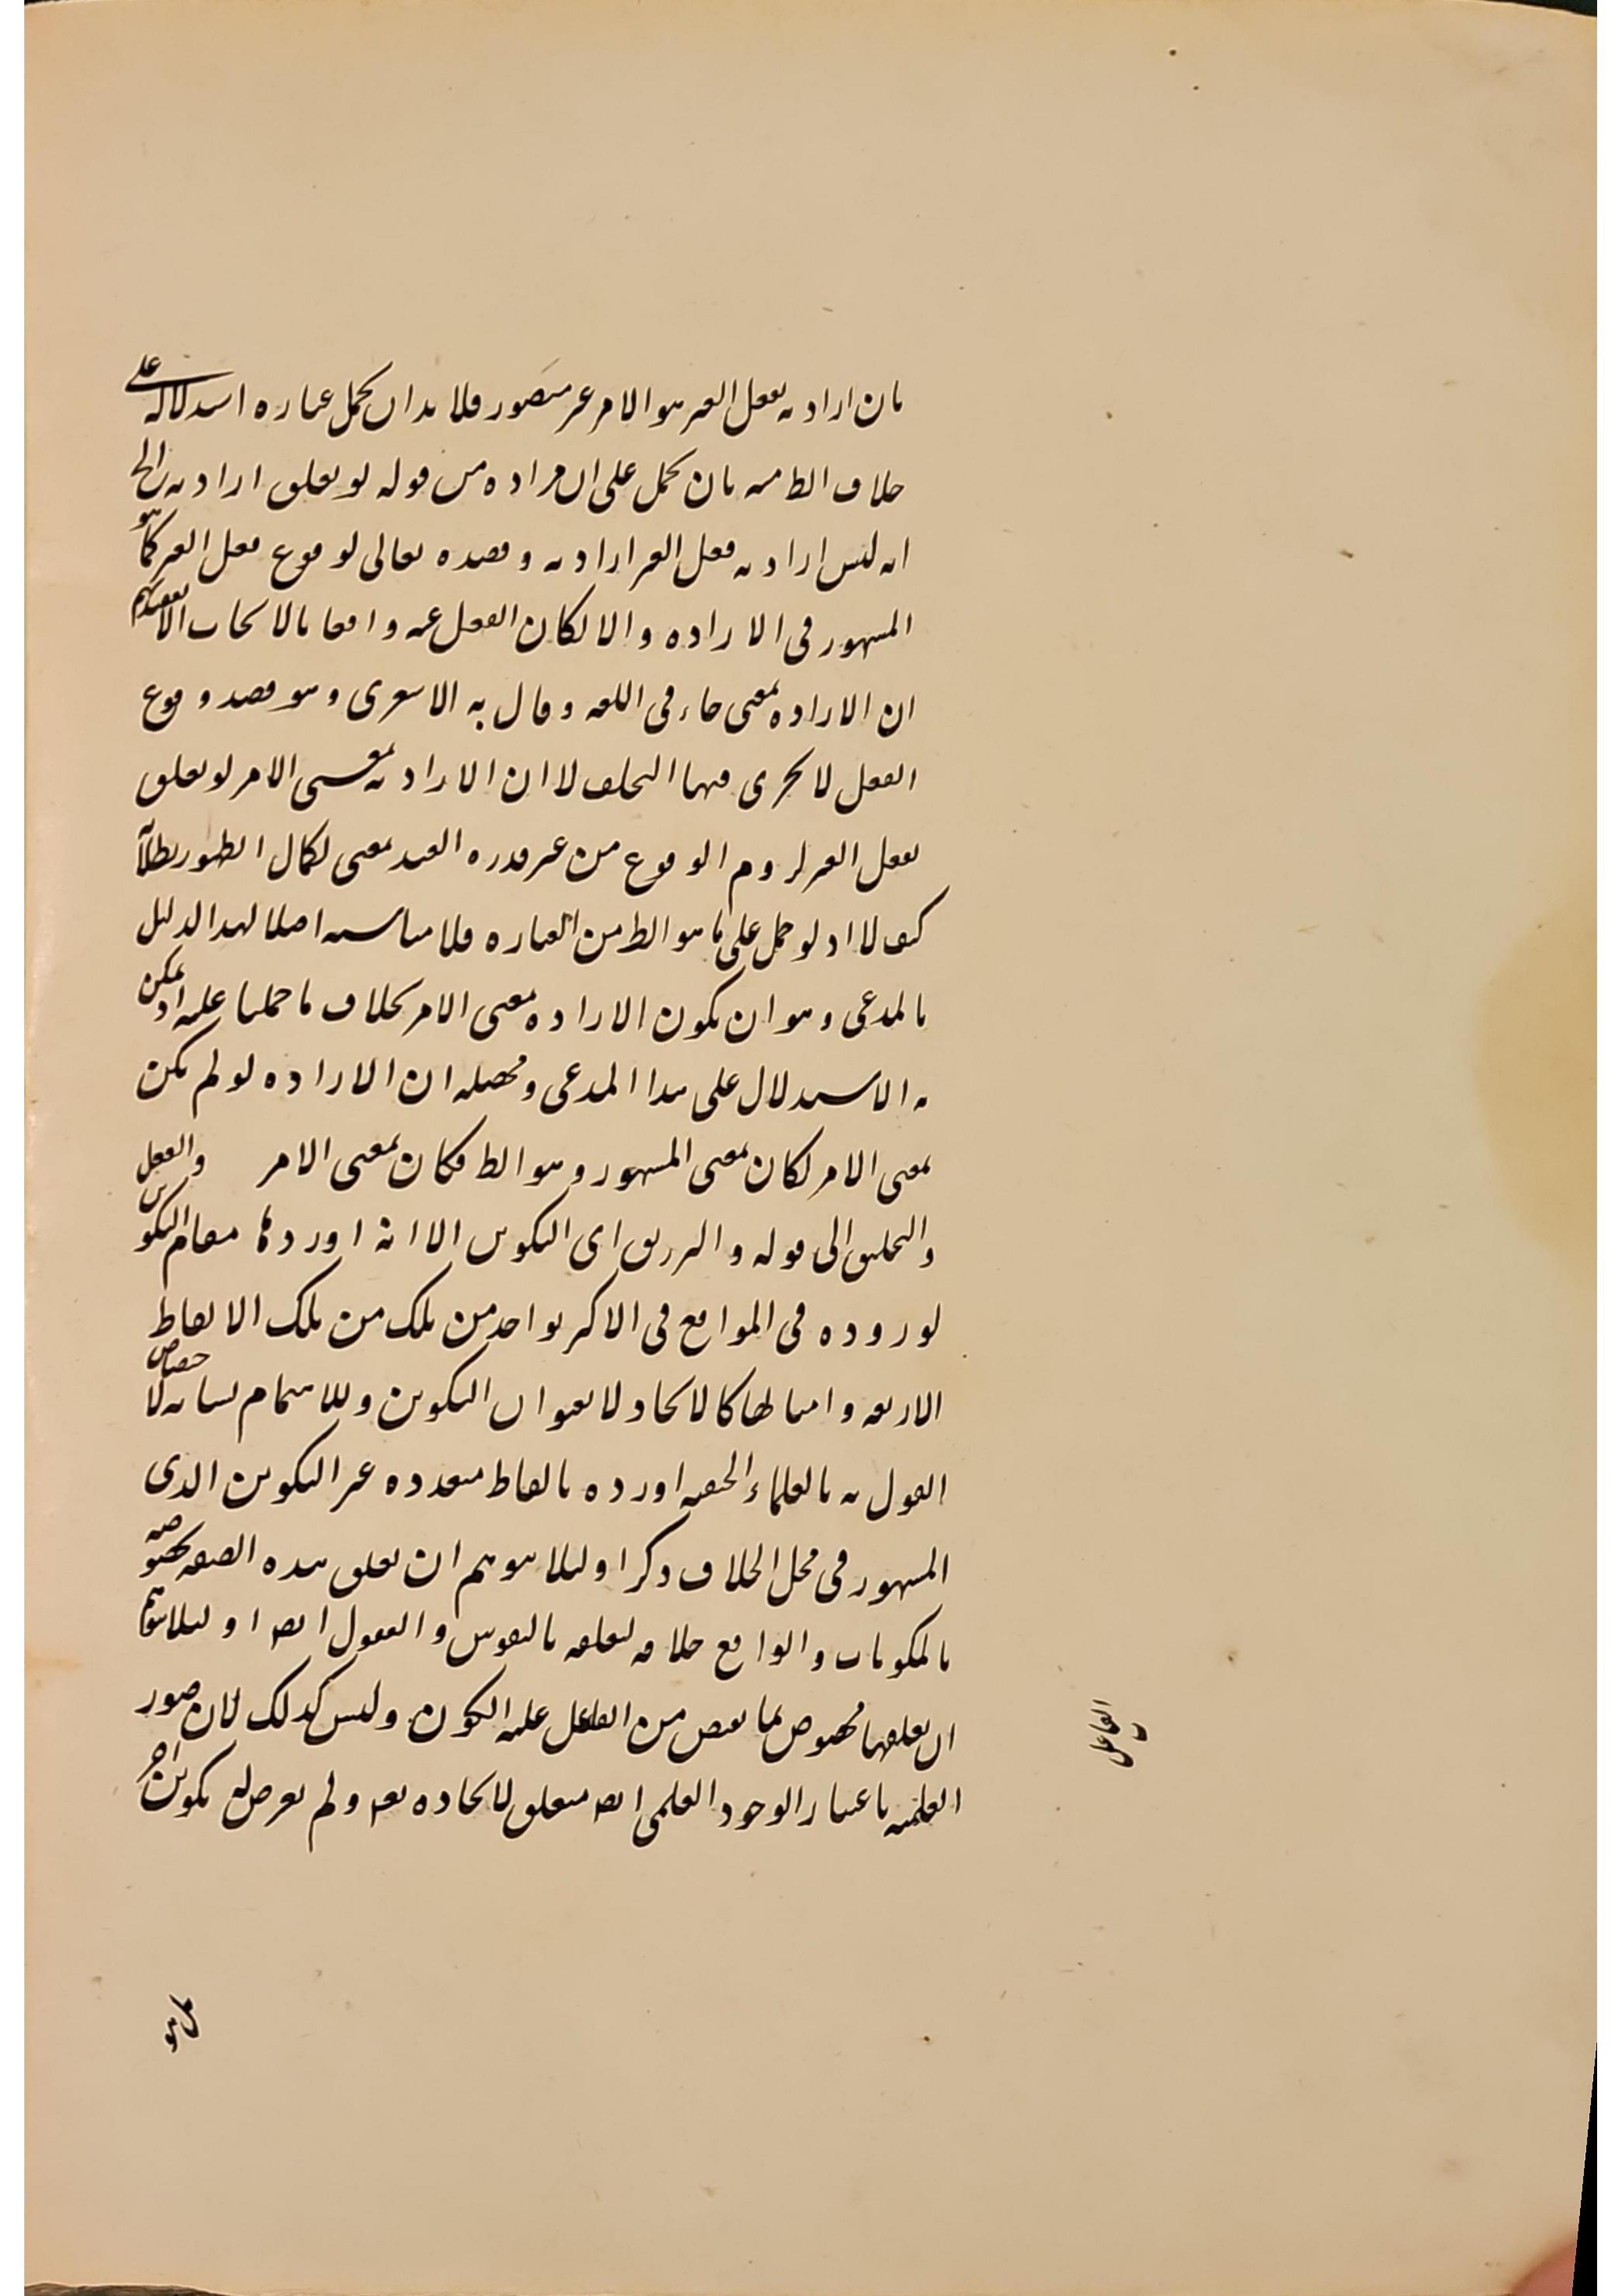 بان ارادته لفعل الغير هو الامر غير متصور فلا بد ان يحمل عبارة استدلاله على
خلاف الظ منه بان يحمل على ان مراده من قوله لو تعلق ارادته الخ
انه ليس ارادته فعل الغير ارادته وقصده تعالى لوقوع فعل الغير كما هو
المشهور في الارادة والا لكان الفعل عنه واقعا بالايجاب الا
ان الارادة بمعنى جاء في اللغة وقال به الاشعرى وهو قصد وقوع
الفعل لا يجرى فيها التخلف لا ان الارادته بمعنى الامر لو تعلق
بفعل الغير لزوم الوقوع من غير قدرة العبد بمعنى لكمال الظهور بطلانه
كيف لا اذ لو حمل على ما هو الظ من العبارة فلا مناسبة اصلا لهذا الدليل
بالمدعى وهو ان يكون الارادة بمعنى الامر بخلاف ما حملنا عليه اذ يمكن
به الاستدلال على هذا المدعى ومحصله ان الارادة لو لم يكن
بمعنى الامر لكان بمعنى المشهور وهو الظ فكان بمعنى الامر والفعل
والتخليق الى قوله والترزيق اى التكوين الا انه اوردها مقام التكوين
لوروده في المواقع في الاكثر بواحد من تلك من تلك الالفاظ
الاربعة وامثالها كالايجاد لا بعنوان التكوين وللاهتمام بشانه لاختصاص
القول به بالعلماء الحنفية اورده بالفاظ متعددة غير التكوين الذى
المشهور في محل الخلاف ذكرا ولئلا يتوهم ان تعلق هذه الصفة مخصوصة
بالمكونات والواقع خلافه لتعلقه بالنفوس والعقول ايضا او لئلا يتوهم
ان تعلقها مخصوص بما يفيض من الفاعل عليه الكون وليس كذلك لان صور
العلمية باعتبار الوجود العلمى ايضا متعلق لايجاده تعالى ولم يعرض له تكوين اخر
الفاعل